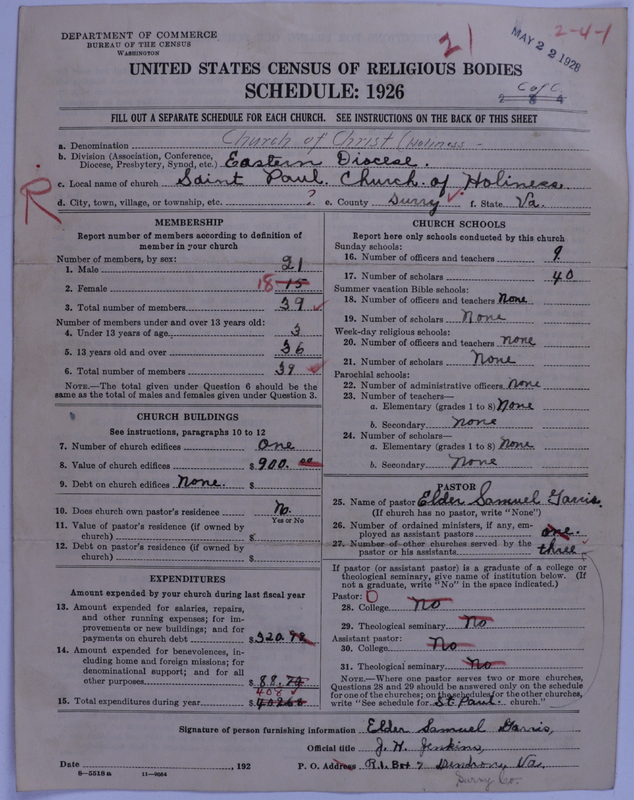 DEPARTMENT OF COMMERCE
BUREAU OF THE CENSUS
WASHINGTON
21
MAY 22 1928
2-4-1
UNITED STATES CENSUS OF RELIGIOUS BODIES
SCHEDULE: 1926
C of C.
2 8 4
FILL OUT A SEPARATE SCHEDULE FOR EACH CHURCH. SEE INSTRUCTIONS ON THE BACK OF THIS SHEET
a. Denomination Church of Christ (Holiness -
b. Division (Association, Conference, Diocese, Presbytery, Synod, etc.) Eastern Diocese.
c. Local name of church Saint Paul. Church of Holiness
R
d. City, town, village, or township, etc. ? e. County Surry f. State Va.
MEMBERSHIP
Report number of members according to definition of
member in your church
Number of members, by sex:
1. Male 21
2. Female 18 15
3. Total number of members 39
Number of members under and over 13 years old:
4. Under 13 years of age 3
5. 13 years old and over 36
6. Total number of members 39
NOTE.—The total given under Question 6 should be
same as the total of males and females given under Question 3.
CHURCH BUILDINGS
See instructions, paragraphs 10 to 12
7. Number of church edifices One
8. Value of church edifices $900. 00
9. Debt on church edifices None. $
10. Does church own pastor's residence No.
Yes or No
11. Value of pastor's residence (if owned by
church) $
12. Debt on pastor's residence (if owned by
church) $
EXPENDITURES
Amount expended by your church during last fiscal year
13. Amount expended for salaries, repairs,
and other running expenses; for im-
provements or new buildings; and for
payments on church debt $320.78
14. Amount expended for benevolences, in-
cluding home and foreign missions; for
denominational support; and for all
other purposes $88.74
408
15. Total expenditures during year $
CHURCH SCHOOLS
Report here only schools conducted by this church
Sunday schools:
16. Number of officers and teachers 9
17. Number of scholars 40
Summer vacation Bible schools:
18. Number of officers and teachers None
19. Number of scholars None
Week-day religious schools:
20. Number of officers and teachers None
21. Number of scholars None
Parochial schools:
22. Number of administrative officers None
23. Number of teachers—
a. Elementary (grades 1 to 8) None
b. Secondary None
24. Number of scholars—
a. Elementary (grades 1 to 8) None
b. Secondary None
PASTOR
25. Name of pastor Elder Samuel Garris.
(If church has no pastor, write "None")
26. Number of ordained ministers, if any, em-
ployed as assistant pastors one.
27. Number of other churches served by the
pastor or his assistants three
If pastor (or assistant pastor) is a graduate of a college or
theological seminary, give name of institution below. (If
not a graduate, write "No" in the space indicated.)
Pastor: 0
28. College No
29. Theological seminary No
Assistant pastor:
30. College No
31. Theological seminary No
NOTE.—Where one pastor serves two or more churches,
Questions 28 and 29 should be answered only on the schedule
for one of the churches; on the schedules for the other churches,
write "See schedule for St. Paul. church."
Signature of person furnishing information Elder Samuel Garris,
Official title J. H. Jenkins,
Date , 192 P. O. Address R.1. Box 7 Dendron, Va.
8-5518a 11-9664
Surry Co.